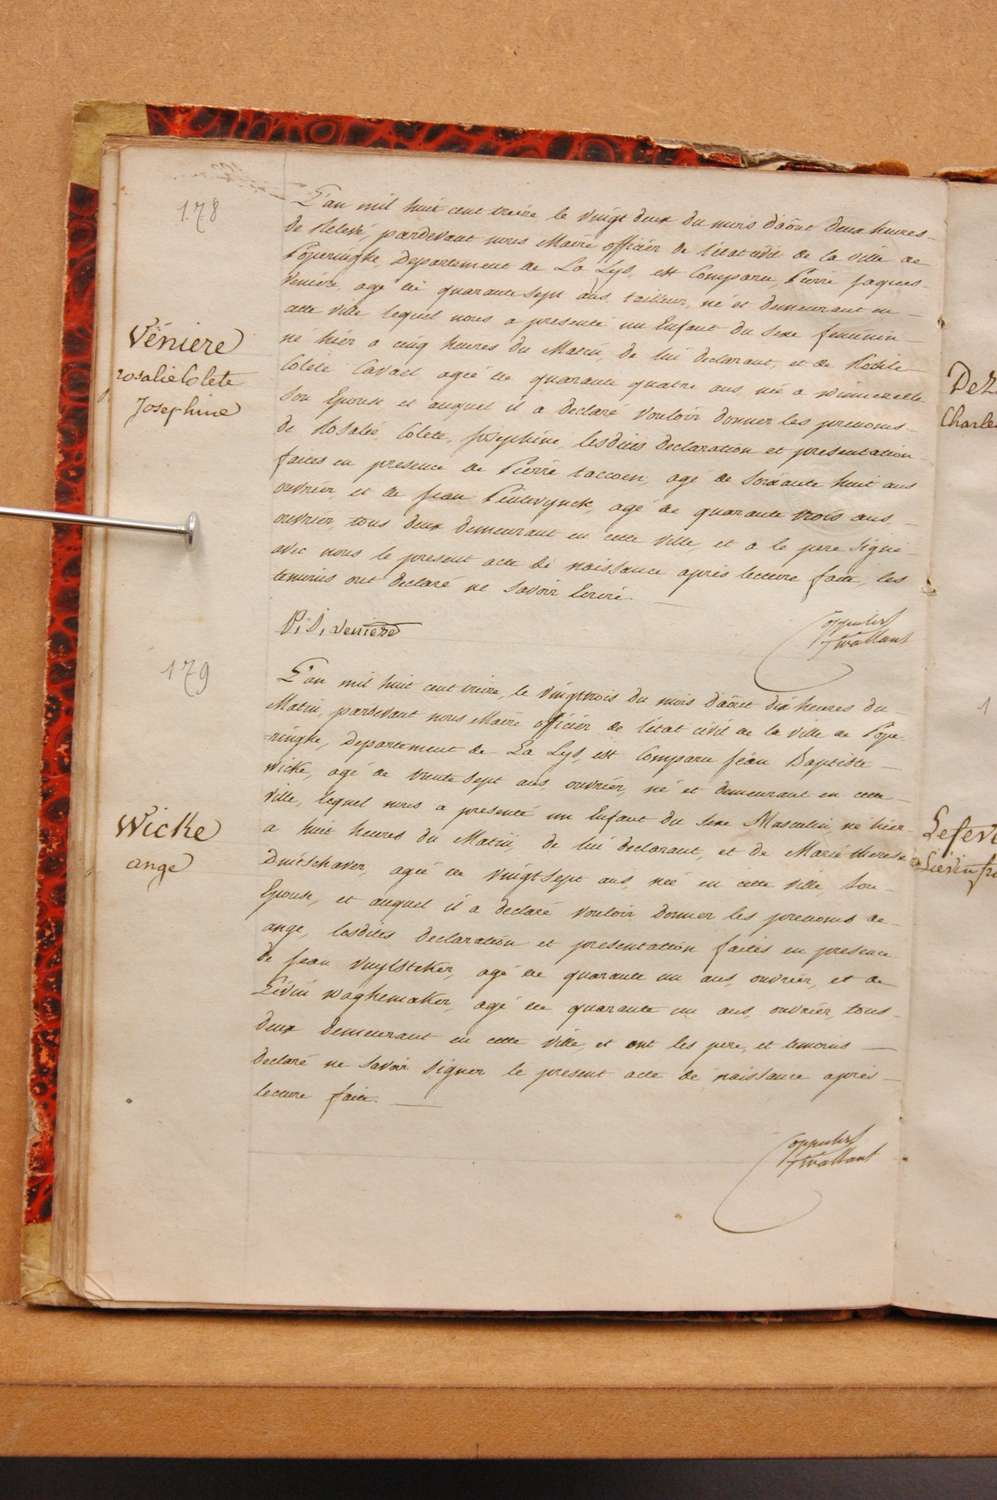 178
Vèniere
rosalie Colete
Josephine
L'an mil huit cent treize le vingt deux du mois d'août deux heures
de Relevé, pardevant nous Maire officier de l'état civil de la ville de
Poperinghe Departement de La Lys, est Comparu, Pierre Jaques
Veniere, agé de quarante sept ans, tailleur, né et demeurant en
cette ville lequel nous a presenté un Enfant du sexe feminin
né hier a cinq heures du Matin, de lui declarant, et de
Colete agée de quarante quatre ans, née a
Son Epouse et auquel il a declaré vouloir donner les prenoms
de Rosalie, Colete, Josephine lesdites declaration et presentation
faites en presence de Pierre agé de soixante huit ans
ouvrier et de jean agé de quarante trois ans,
ouvrier, tous deux demeurant en cette ville et a le pere signé
avec nous le present acte de naissance après lecture faite, les
temoins ont declaré ne savoir Ecrire
P: J: veniere
179
Wicke
ange
L'an mil huit cent treize, le vingt trois du mois d'août dix heures du
Matin, pardevant nous Maire officier de l'état civil de la ville de Pope-
ringhe, departement de La Lys, est Comparu jean Baptiste
Wicke, agé de trente sept ans, ouvrier, né et demeurant en cette
ville, lequel nous a presenté un Enfant du sexe Masculin, né hier
a huit heures du Matin, de lui declarant, et de Marie therese
agée de vingt sept ans, née en cette ville, Son
Epouse, et auquel il a declaré vouloir donner les prenoms de
ange, lesdites declaration et presentation faites en presence
de jean vuylsteker, agé de quarante un ans, ouvrier, et de
Livin waghemaker, agé de quarante un ans, ouvrier, tous
deux demeurant en cette ville, et ont les pere, et temoins
declaré ne savoir signer le present acte de naissance après
lecture faite.
Dez
Charle
1
Lefev
Lievin fr